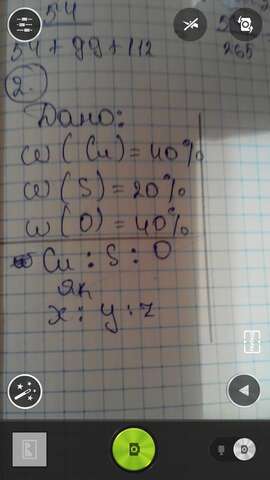 54
54+99+112
265
2.
Дано:
ω(Cu)=40%
ω(S)=20%
ω(O)=40%
Cu:S:O
як
x:y:z